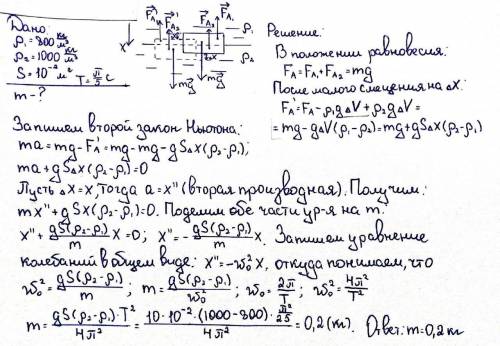 Дано:
ρ₁=800 кг/м³
ρ₂=1000 кг/м³
S=10⁻² м² T=π/5 c
m-?
x
F_A₁ F_A₂ F_A₂ F_A₁
ρ₁
Δx
ρ₂
mg mg
Решение:
В положении равновесия:
F_A=F_A₁+F_A₂=mg
После малого смещения на ΔX:
F_A=F_A-ρ₁gΔV+ρ₂gΔV=
=mg-gΔV(ρ₁-ρ₂)=mg+gSΔx(ρ₂-ρ₁)
Запишем второй закон Ньютона:
ma=mg-F_A=mg-mg-gSΔx(ρ₂-ρ₁);
ma+gSΔx(ρ₂-ρ₁)=0
Пусть Δx=x, тогда a=x'' (вторая производная). Получим:
mx''+gSx(ρ₂-ρ₁)=0. Поделим обе части ур-я на m.
x''+gS(ρ₂-ρ₁)/m x=0; x''=-gS(ρ₂-ρ₁)/m x. Запишем уравнение
колебаний в общем виде: x''=-ω₀²x, откуда понимаем, что
ω₀²=gS(ρ₂-ρ₁)/m; m=gS(ρ₂-ρ₁)/ω₀²; ω₀=2π/T; ω₀²=4π²/T²
m=gS(ρ₂-ρ₁)·T²/4π²=10·10⁻²·(1000-800)·π²/25/4π²=0,2(кг). Ответ: m=0,2кг